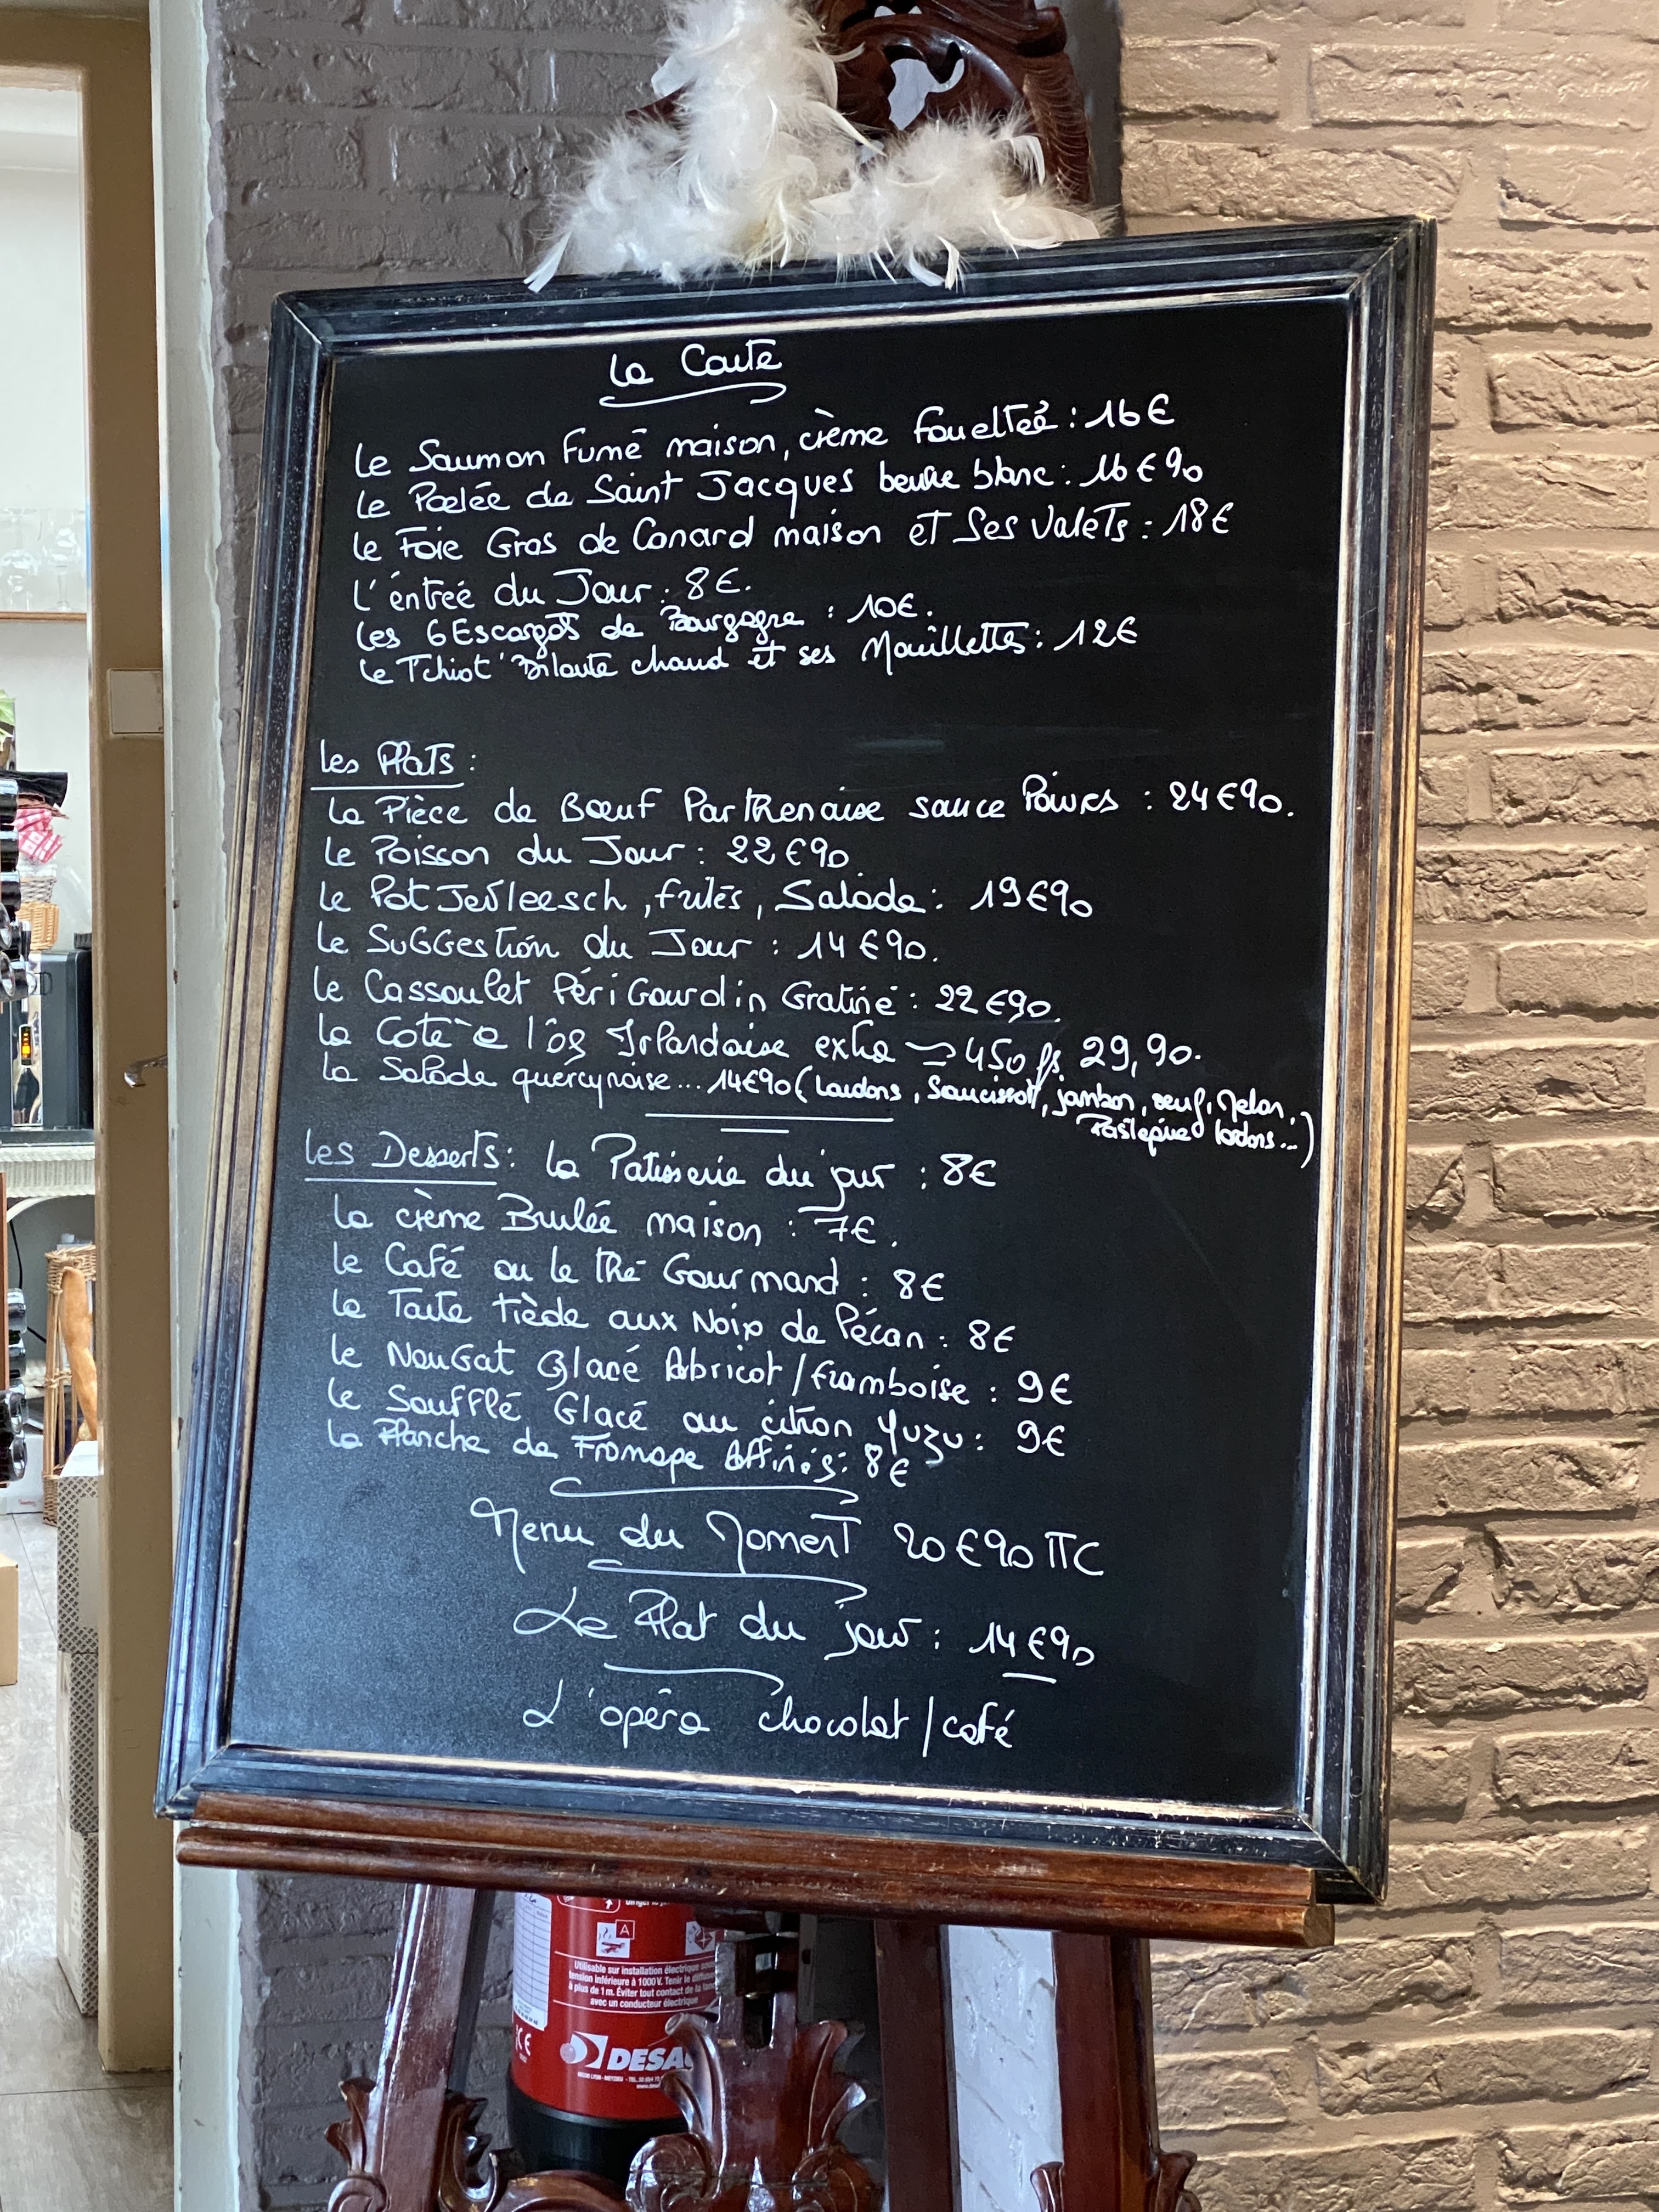 La Carte
Le Saumon Fumé maison, crème fouettée : 16€
La Poêlée de Saint Jacques beurre blanc : 16€90
Le Foie Gras de Canard maison et Ses Valets : 18€
L'entrée du Jour : 8€.
Les 6 Escargots de Bourgogne : 10€.
Le Tchiot' Biloute chaud et ses Mouillettes : 12€
Les Plats :
La Pièce de Bœuf Parthenaise sauce Poivres : 24€90.
Le Poisson du Jour : 22€90
Le Pot Jevleesch, frites, Salade : 19€90
La Suggestion du Jour : 14€90.
Le Cassoulet Périgourdin Gratiné : 22€90.
La Cote à l'os Irlandaise extra 450 grs 29,90.
La Salade quercynoise... 14€90 (Lardons, Saucisson, jambon, œuf, Melon,
Pastèque lardons...)
Les Desserts : La Patisserie du jour : 8€
La crème Brulée maison : 7€.
Le Café ou Le thé Gourmand : 8€
La Tarte tiède aux Noix de Pécan : 8€
Le Nougat Glacé Abricot/framboise : 9€
Le Soufflé Glacé au citron Yuzu : 9€
La Planche de Fromage Affinés : 8€
Menu du Moment 20€90 TTC
Le Plat du jour : 14€90
L'opéra chocolat/café
A
Utilisable sur installation électrique sous
tension inférieure à 1000 V. Tenir le diffuseur
à plus de 1 m. Éviter tout contact de la lance
avec un conducteur électrique
DESA